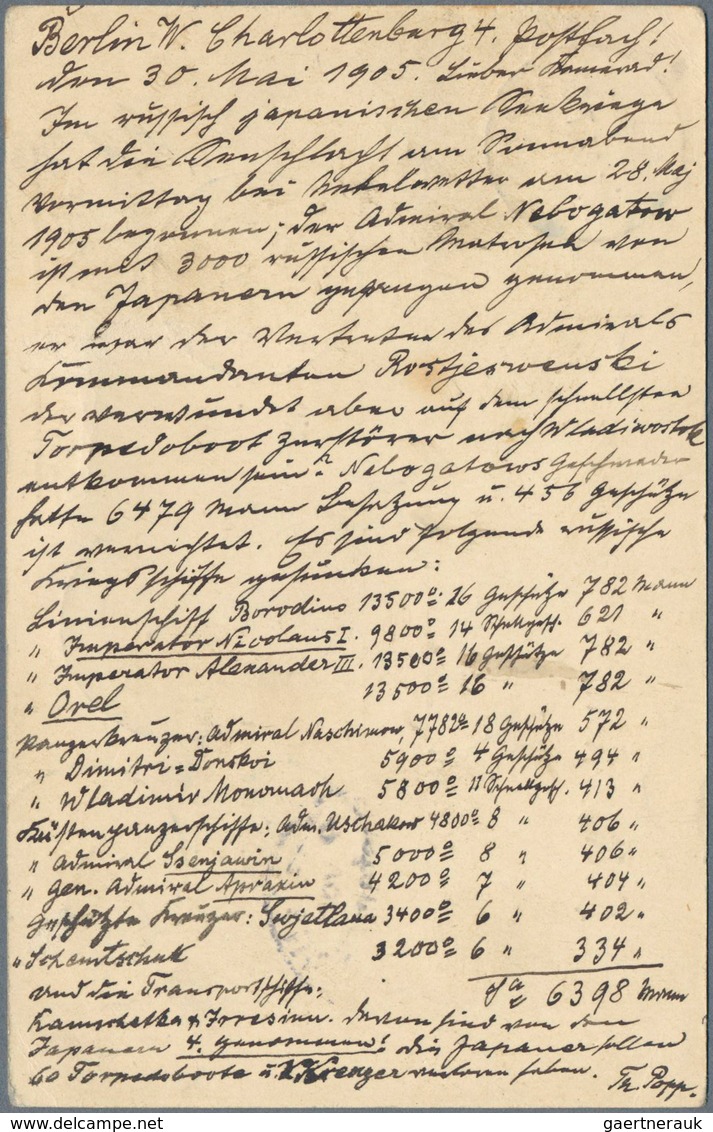 Berlin W. Charlottenburg 4. Postfach!
den 30. Mai 1905. Lieber Kamerad!
Im russisch japanischen Seekriege
hat die Seeschlacht am Sonnabend
Vormittag bei Nebelwetter am 28. Maj
1905 begonnen; der Admiral Nebogatow
ist mit 3000 russischen Matrosen von
den Japanern gefangen genommen,
er war der Vertreter des Admirals
Kommandanten Rostjeswenski
der verwundet aber auf dem schnellsten
Torpedoboot Zerstörer nach Wladiwostok
entkommen sein? Nebogatows Geschwader
hatte 6479 Mann Besatzung u. 456 Geschütze
ist vernichtet. Es sind folgende russische
Kriegsschiffe gesunken:
Linienschiff Borodino 13500 16 Geschütze 782 Mann
" Imperator Nicolaus I. 9800 14 Schnellgesch. 621 "
" Imperator Alexander III. 13500 16 Geschütze 782 "
" Orel 13500 16 " 782 "
Panzerkreuzer: Admiral Naschimow 7782 18 Geschütze 572 "
" Dimitri=Donskoi 5900 4 Geschütze 494 "
" Wladimir Monomach 5800 11 Schnellgesch. 413 "
Küstenpanzerschiffe: Adm. Uschakow 4800 8 " 406 "
" Admiral Ssenjawin 5000 8 " 406 "
" Gen. Admiral Apraxin 4200 7 " 404 "
Geschützte Kreuzer: Swjetlana 3400 6 " 402 "
" Schemtschuk 3200 6 " 334 "
Sa 6398 Mann
und die Transportschiffe:
Kamschatka & Irresinn. davon sind von den
Japanern 4. genommen! die Japaner sollen
60 Torpedoboote u. Kreuzer verloren haben. Th. Popp.
gaertnerauk